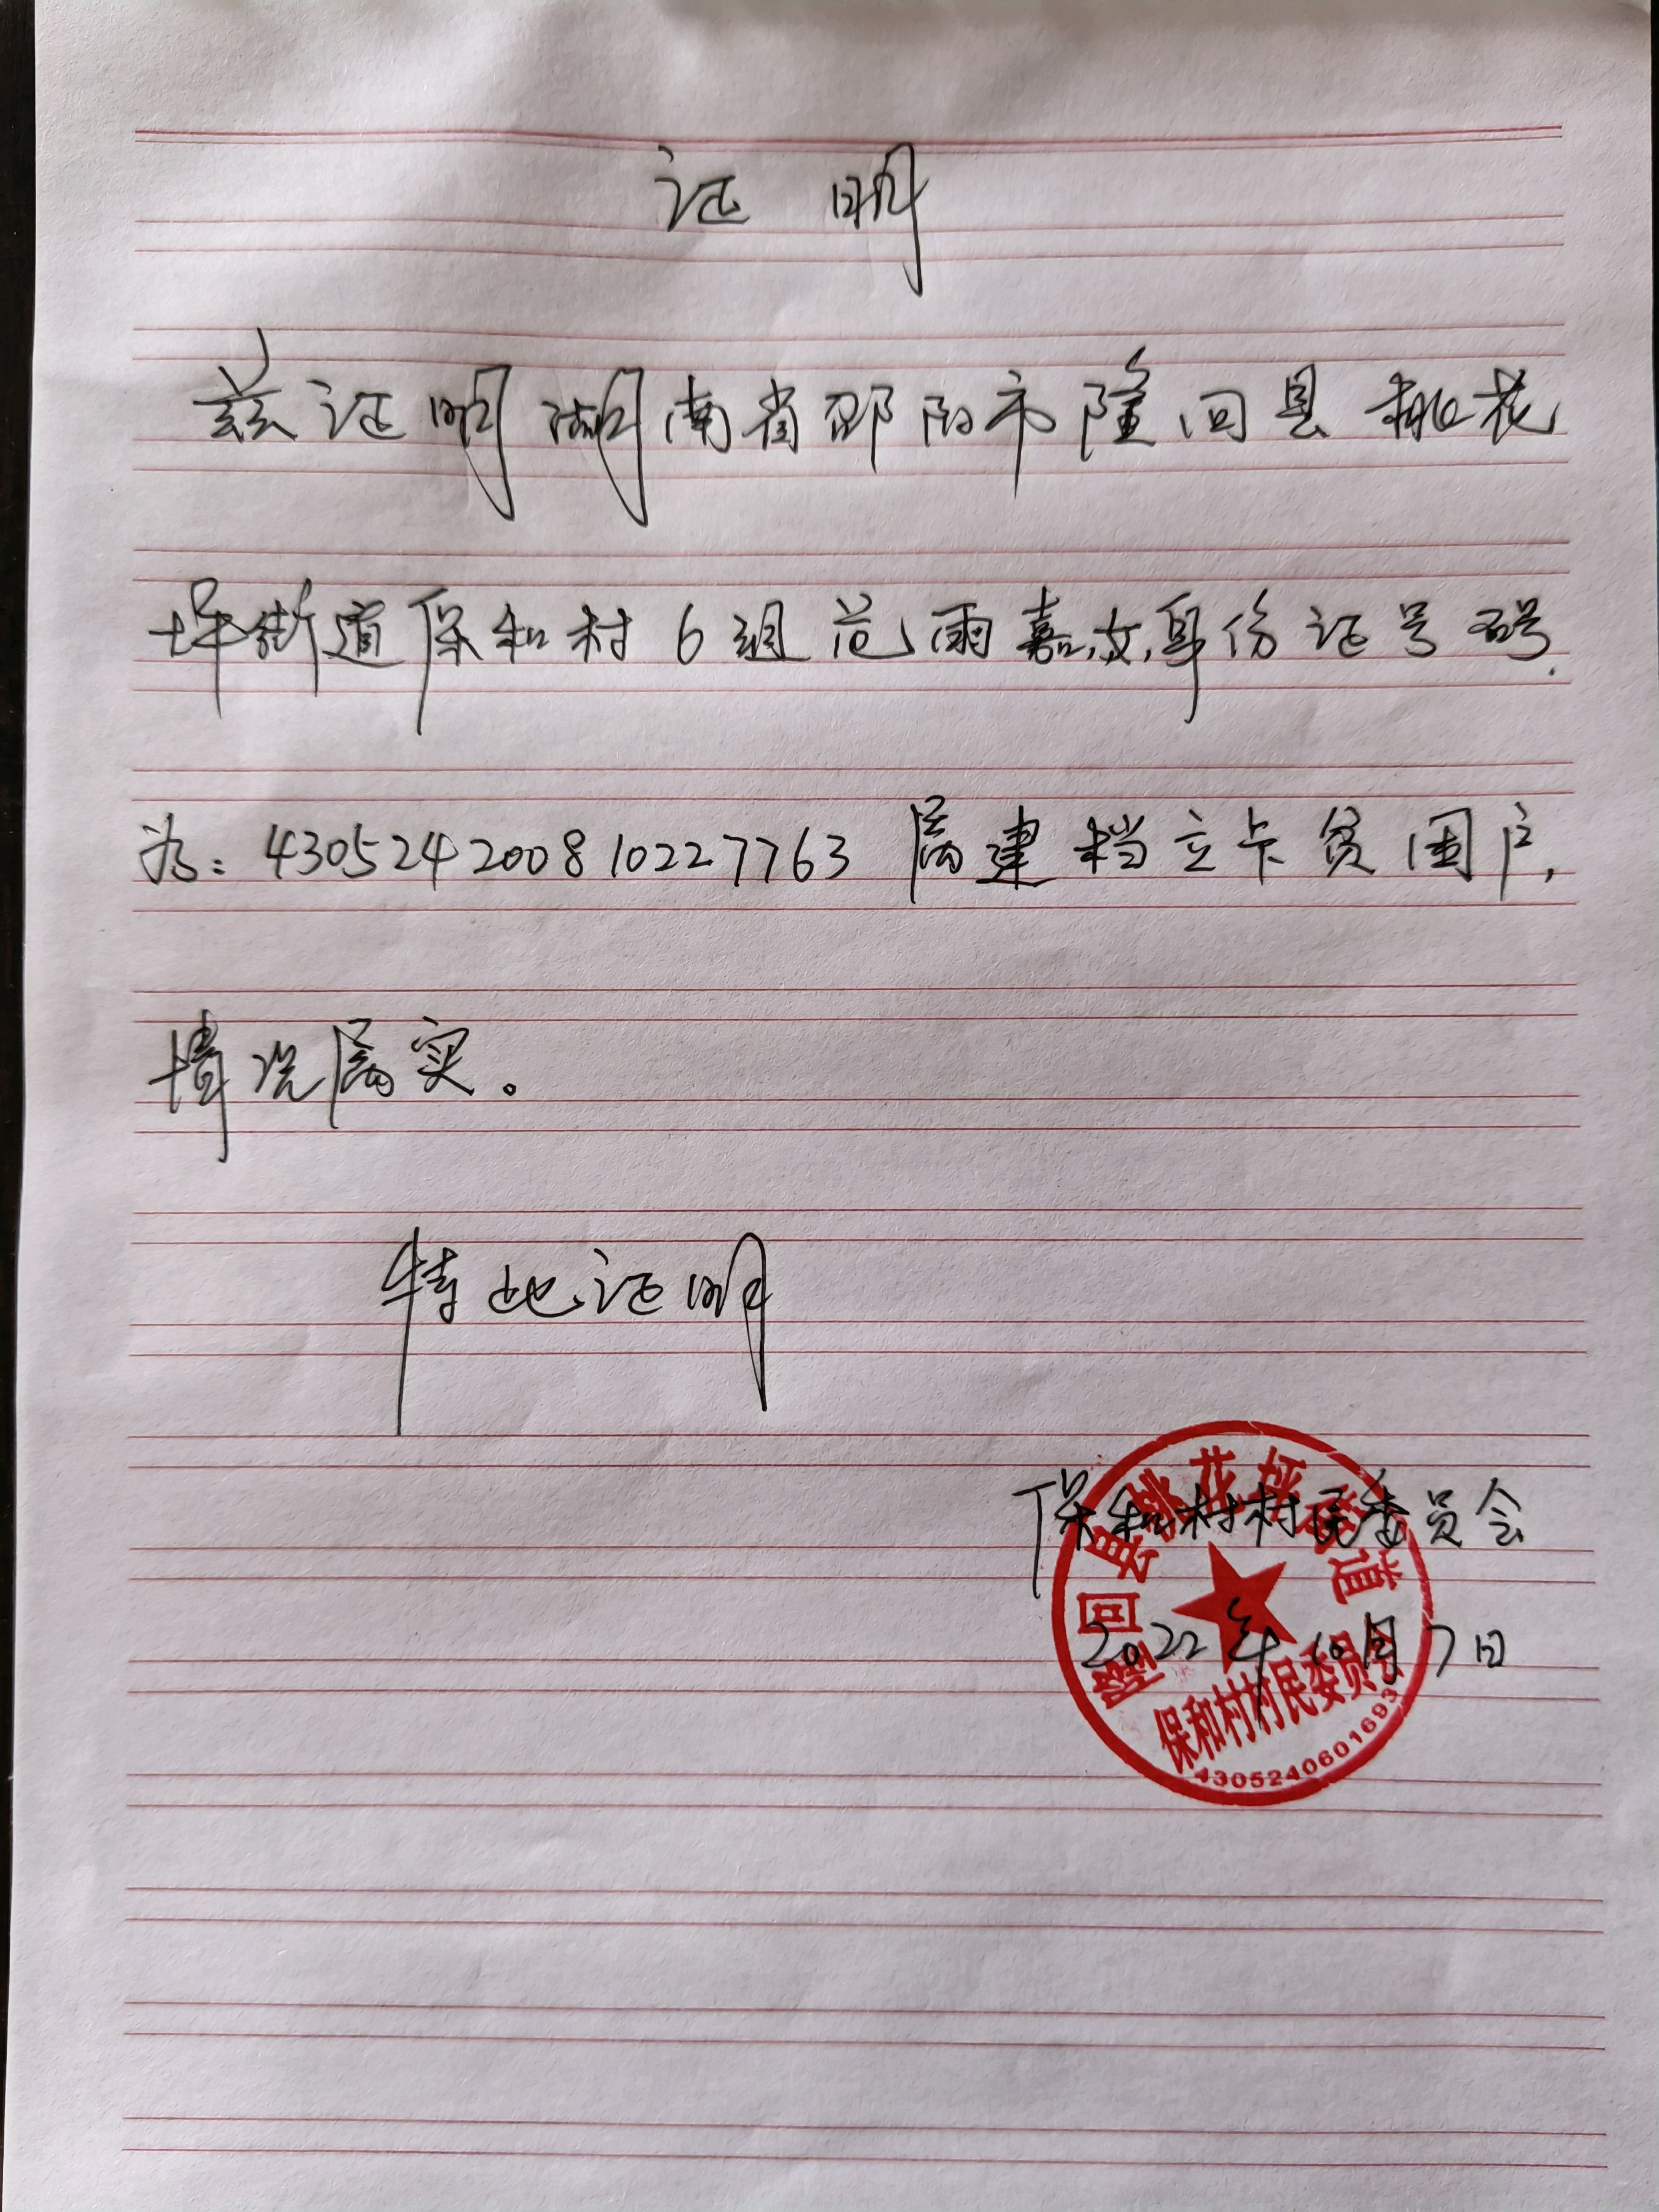 证明
兹证明湖南省邵阳市隆回县桃花
坪街道保和村6组范雨嘉,女,身份证号码
为:430524200810227763属建档立卡贫困户,
情况属实。
特此证明
保和村村民委员会
2022年10月7日
隆回县桃花坪街道
保和村村民委员会
4305240601693